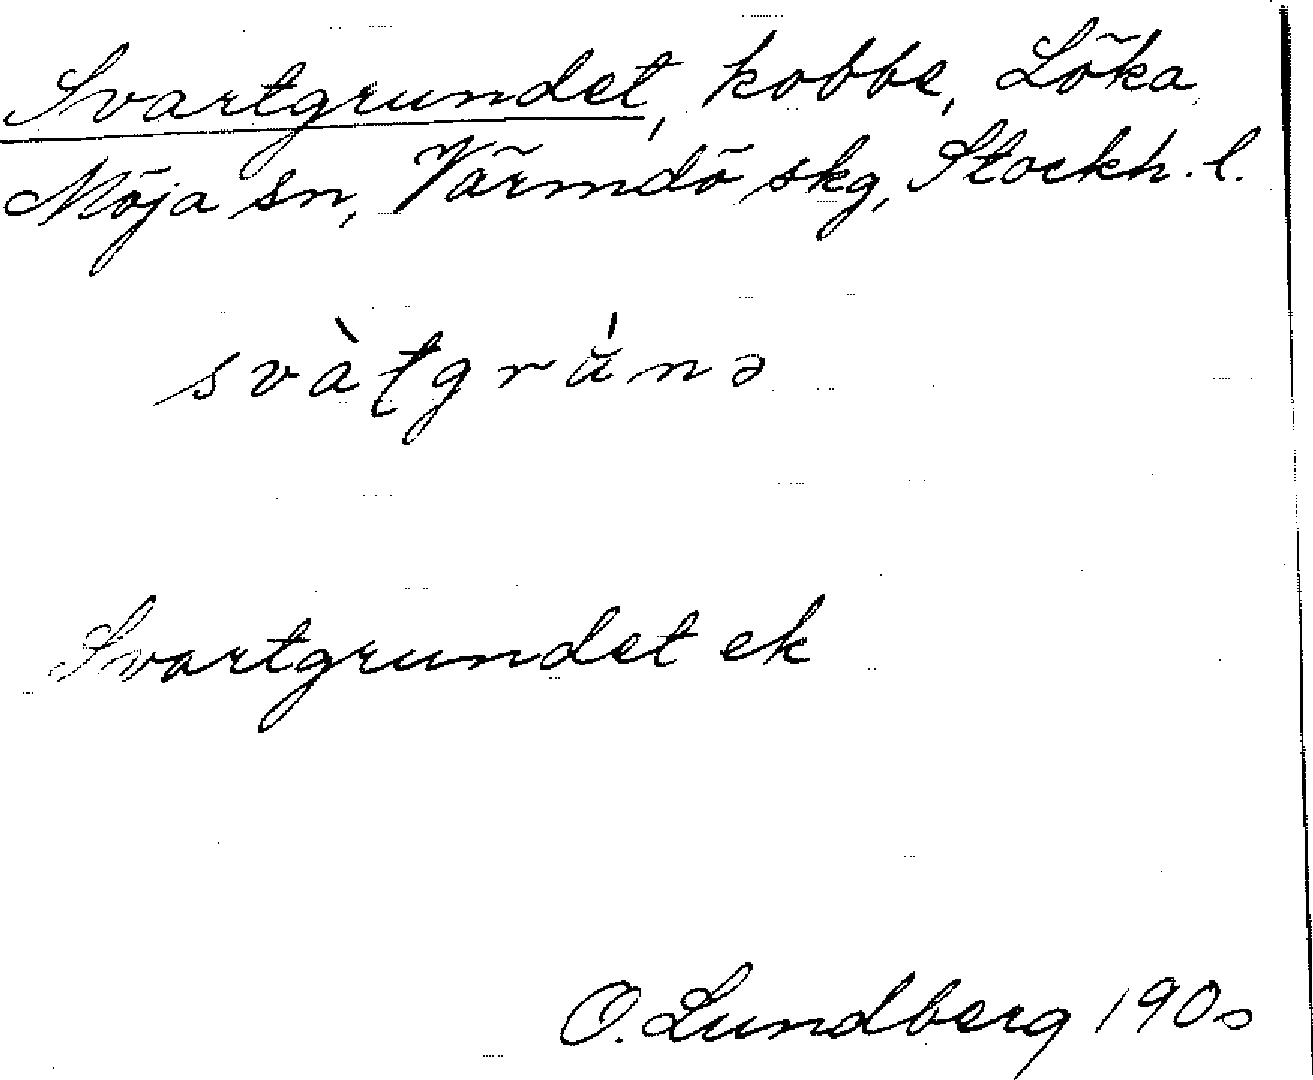 Svartgrundet, kobbe, Löka
Möja sn, Värmdö skg, Stockh. l.
svàtgrúnə
Svartgrundet ek
O. Lundberg 190